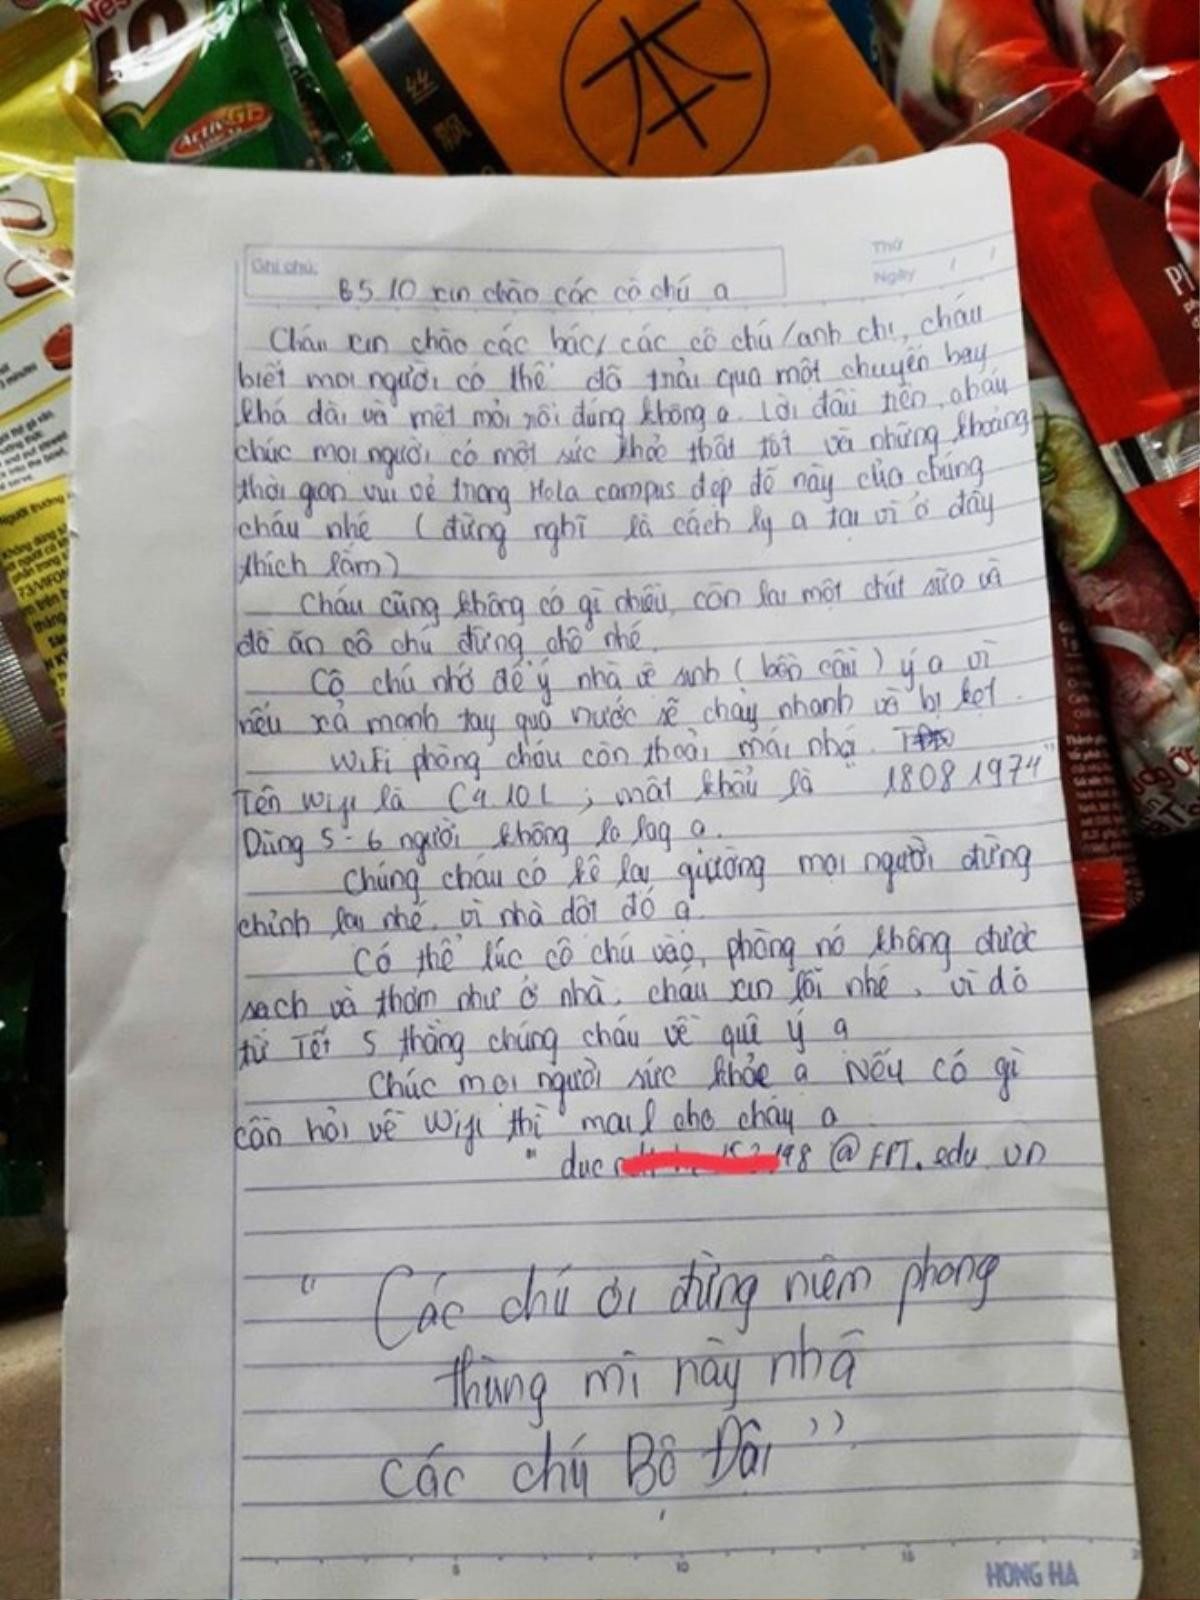 Nes
ActivGO
44
飘
本
PI
Ghi chú:
Thứ
Ngày / /
B510 xin chào các cô chú ạ
Cháu xin chào các bác, các cô chú / anh chị, cháu
biết mọi người có thể đã trải qua một chuyến bay
khá dài và mệt mỏi rồi đúng không ạ. Lời đầu tiên, cháu
chúc mọi người có một sức khỏe thật tốt và những khoảng
thời gian vui vẻ trong Hola campus đẹp đẽ này của chúng
cháu nhé (đừng nghĩ là cách ly ạ tại vì ở đây
thích lắm)
Cháu cũng không có gì nhiều, còn lại một chút sữa và
đồ ăn cô chú đừng chê nhé.
Cô chú nhớ để ý nhà vệ sinh (bồn cầu) ý ạ vì
nếu xả mạnh tay quá nước sẽ chảy nhanh và bị kẹt.
Wifi phòng cháu còn thoải mái nhá.
Tên wifi là C4 10L ; mật khẩu là " 18081974"
Dùng 5-6 người không lo lag ạ.
Chúng cháu có kê lại giường mọi người đừng
chỉnh lại nhé, vì nhà dột đó ạ
Có thể lúc cô chú vào, phòng nó không được
sạch và thơm như ở nhà, cháu xin lỗi nhé, vì đó
từ Tết 5 thằng chúng cháu về quê ý ạ
Chúc mọi người sức khỏe ạ Nếu có gì
cần hỏi về Wifi thì mail cho cháu ạ
" duc 198 @ FPT.edu.vn
" Các chú ơi đừng niêm phong
thùng mì này nhá
các chú Bộ Đội "
5 10 15
HONG HA